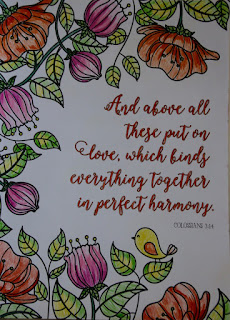 And above all
these put on
love, which binds
everything together
in perfect harmony.
COLOSSIANS 3:14